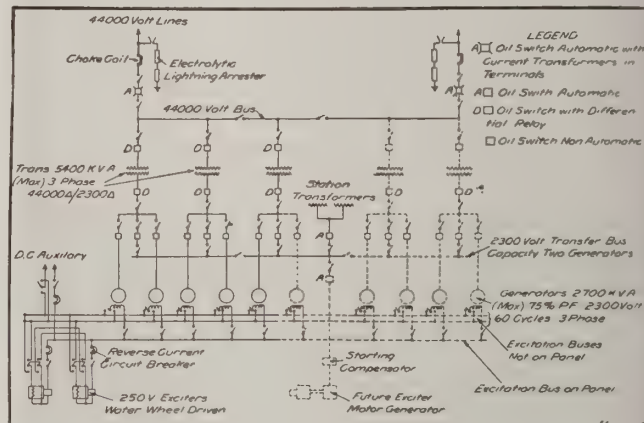 44000 Volt Lines
Choke Coil
Electrolytic
Lightning Arrester
A
44000 Volt Bus
LEGEND
A Oil Switch Automatic with
Current Transformers in
Terminals
A Oil Swith Automatic
D Oil Switch with Differen
tial Relay
Oil Switch Non Automatic
A
D
D
D
D
D
Trans 5400 KVA
(Max) 3 Phase
44000Δ/2300Δ
D
D
D
D
D
Station
Transformers
A
A
2300 Volt Transfer Bus
Capacity Two Generators
D.C Auxilary
Generators 2700 KVA
(Max) 75% PF 2300 Volt
60 Cycles 3 Phase
Excitation Buses
Not on Panel
Reverse Current
Circuit Breaker
Starting
Compensator
Excitation Bus on Panel
250 V Exciters
Water Wheel Driven
Future Exciter
Motor Generator